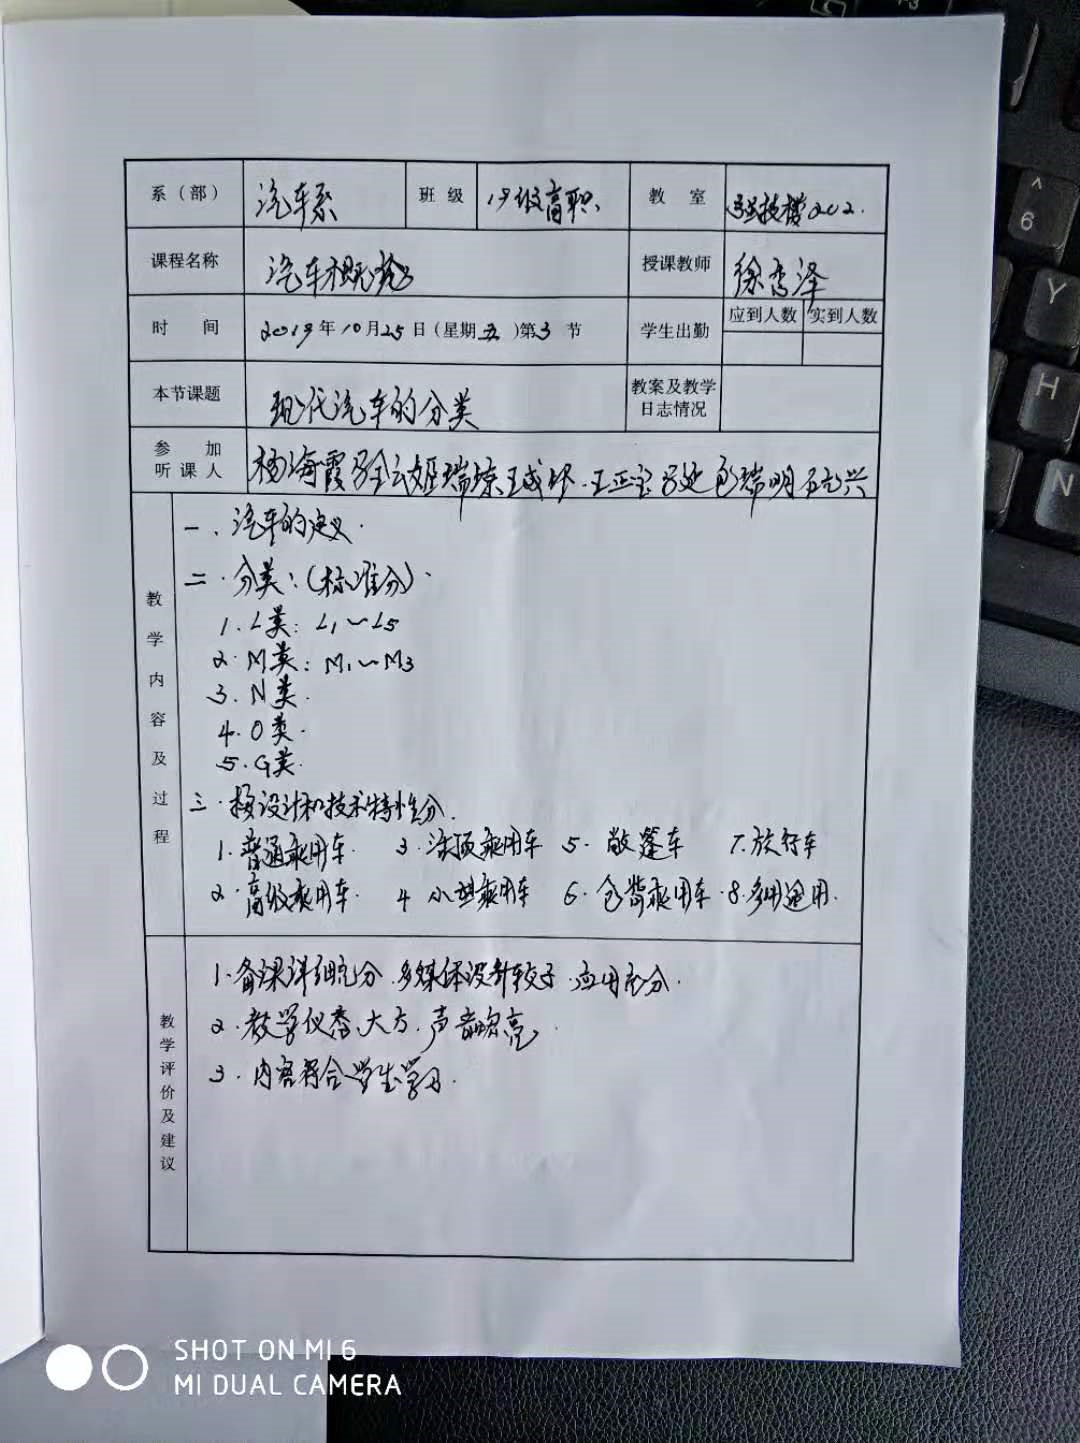 系（部） 汽车系 班 级 19级高职 教 室 202.
课程名称 汽车概论 授课教师 徐泽
时 间 2019年10月25日（星期五）第3节 学生出勤 应到人数 实到人数
本节课题 现代汽车的分类 教案及教学日志情况
参 加 听 课 人 杨海霞 瑞 王成 王正宝 瑞明 兴
教学内容及过程
一、汽车的定义.
二.分类：（标准分）.
1.L类：L1～L5
2.M类：M1～M3
3.N类.
4.O类.
5.G类.
三.按设计和技术特性分.
1.普通乘用车. 3.活顶乘用车 5.敞篷车 7.旅行车
2.高级乘用车. 4 小型乘用车 6.仓背乘用车.8.多用途用.
教学评价及建议
1.备课详细充分.多媒体设计较好.应用充分.
2.教学仪态大方.声音响亮.
3.内容符合学生学习.
SHOT ON MI 6
MI DUAL CAMERA
^
6
Y
H
N